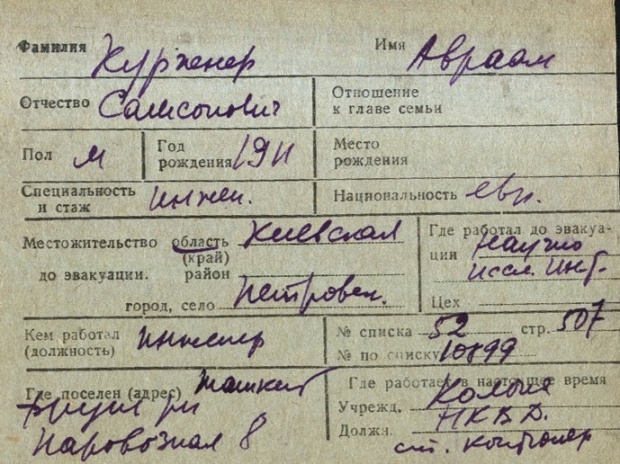 Фамилия Курженер Имя Авраам
Отчество Самсонович Отношение к главе семьи
Пол М Год рождения 1911 Место рождения
Специальность и стаж инжен. Национальность евр.
Местожительство область (край) Киевская
до эвакуации. район
город, село Петровск.
Где работал до эвакуации Научно иссл. инт.
Цех
Кем работал (должность) инженер
№ списка 52 стр. 507
№ по списку 10899
Где поселен (адрес) Ташкент
Паровозная 8
Где работает в настоящее время
Учрежд. НКВД
Должн. ст. контролер